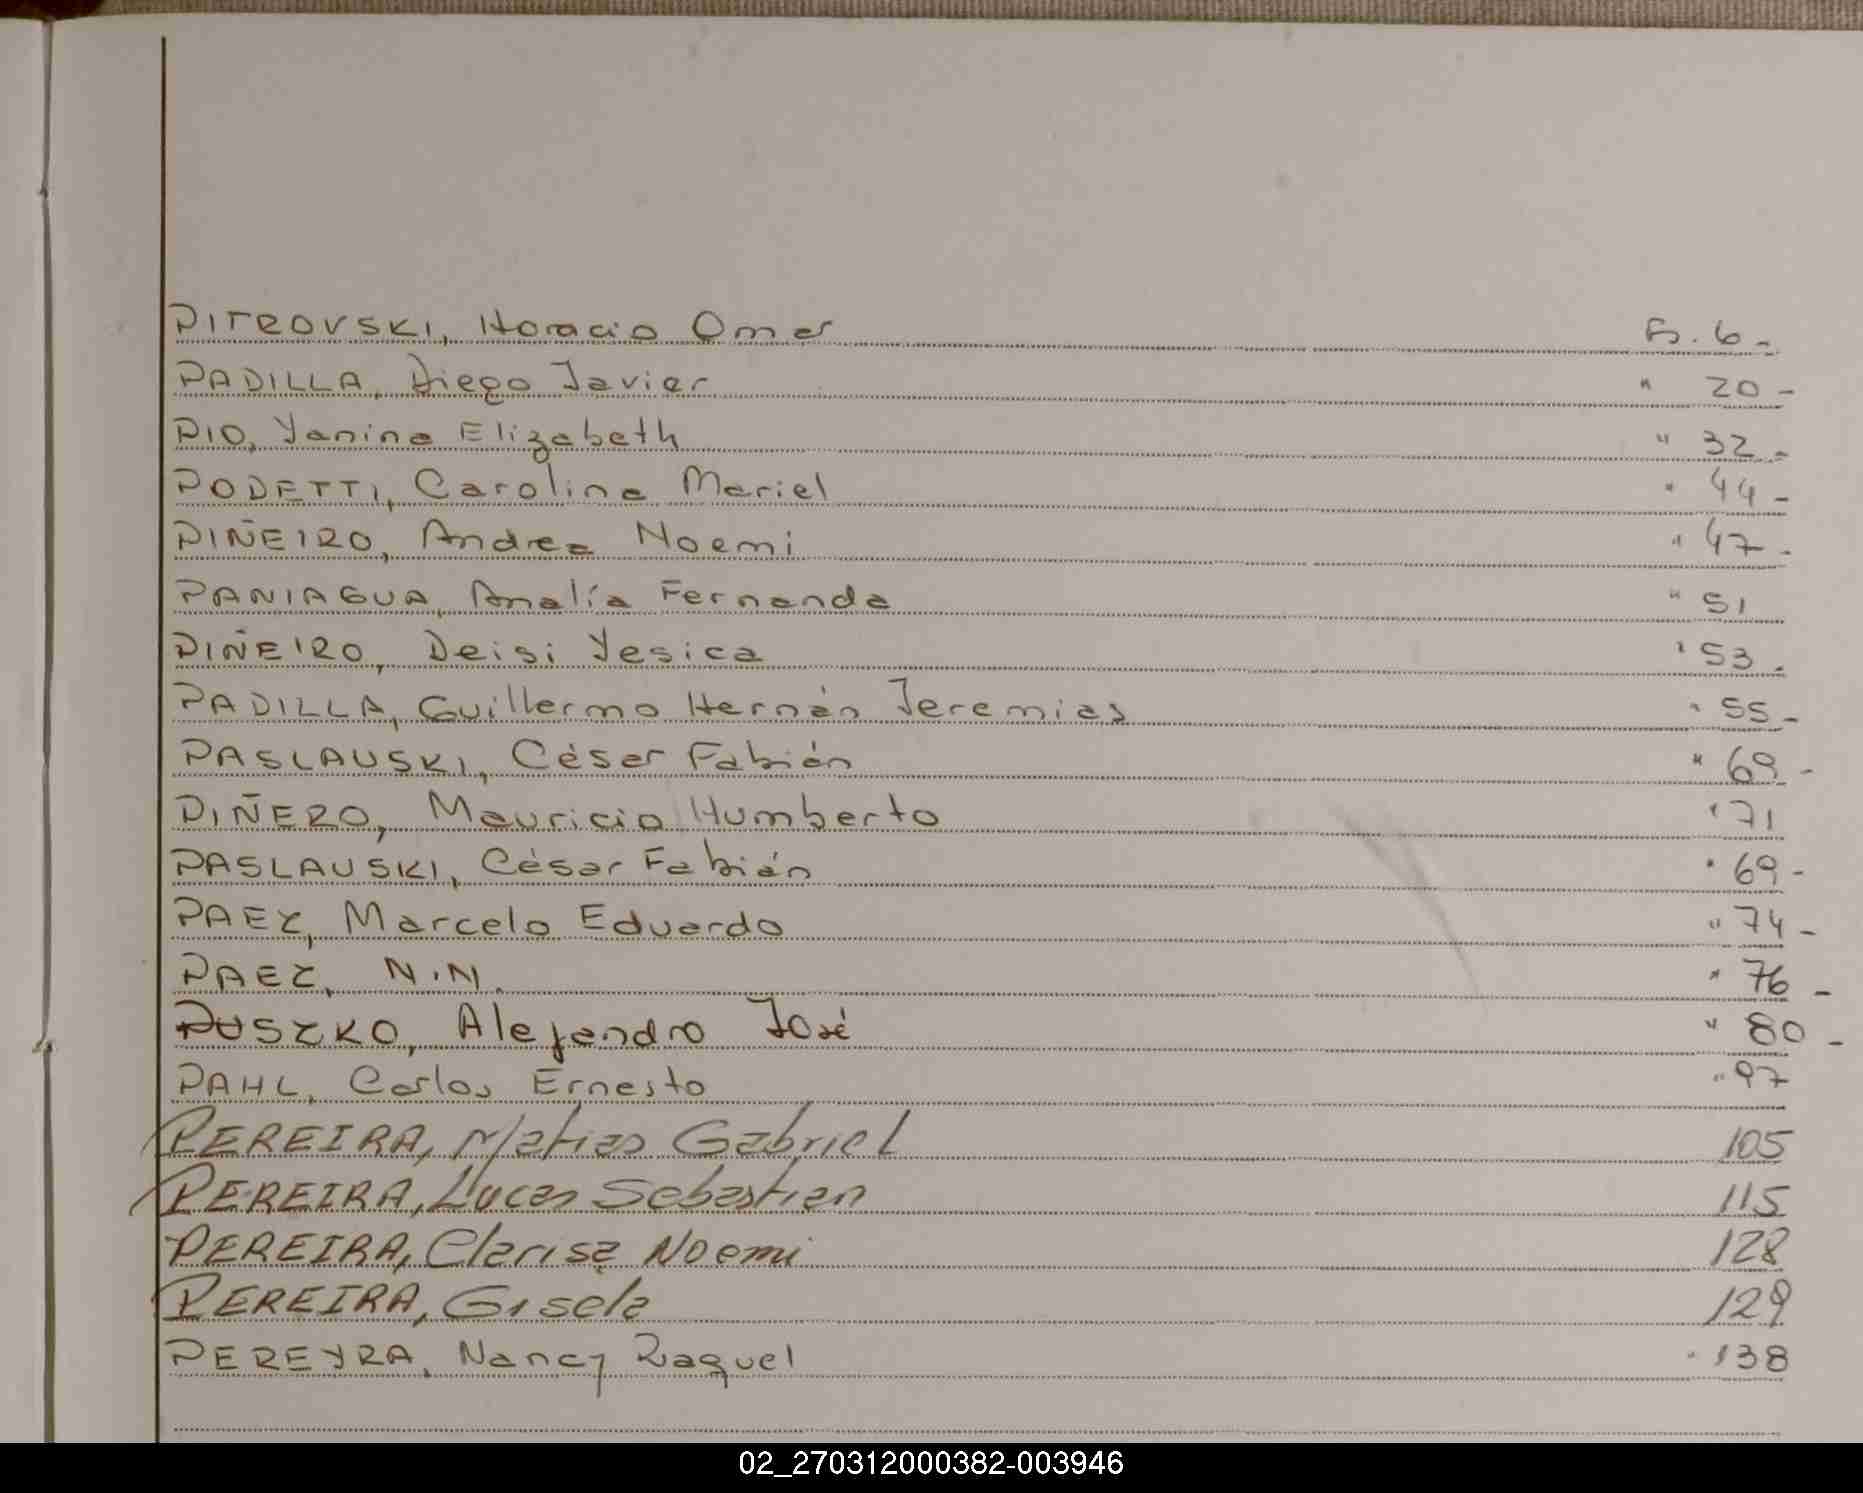 PITROVSKI, Horacio Omar Fs. 6-
PADILLA, Diego Javier " 20-
PIO, Yanina Elizabeth " 32-
PODETTI, Carolina Mariel " 44-
PIÑEIRO, Andrea Noemi " 47-
PANIAGUA, Analía Fernanda " 51
PIÑEIRO, Deisi Yesica " 53-
PADILLA, Guillermo Hernán Jeremias " 55-
PASLAUSKI, César Fabián " 69-
PIÑERO, Mauricio Humberto " 71
PASLAUSKI, César Fabián " 69-
PAEZ, Marcelo Eduardo " 74-
PAEZ, N.N. " 76-
PUSZKO, Alejandro José " 80-
PAHL, Carlos Ernesto " 97
PEREIRA, Matias Gabriel 105
PEREIRA, Lucas Sebastian 115
PEREIRA, Clarisa Noemi 128
PEREIRA, Gisela 129
PEREYRA, Nancy Raquel " 138
02_270312000382-003946